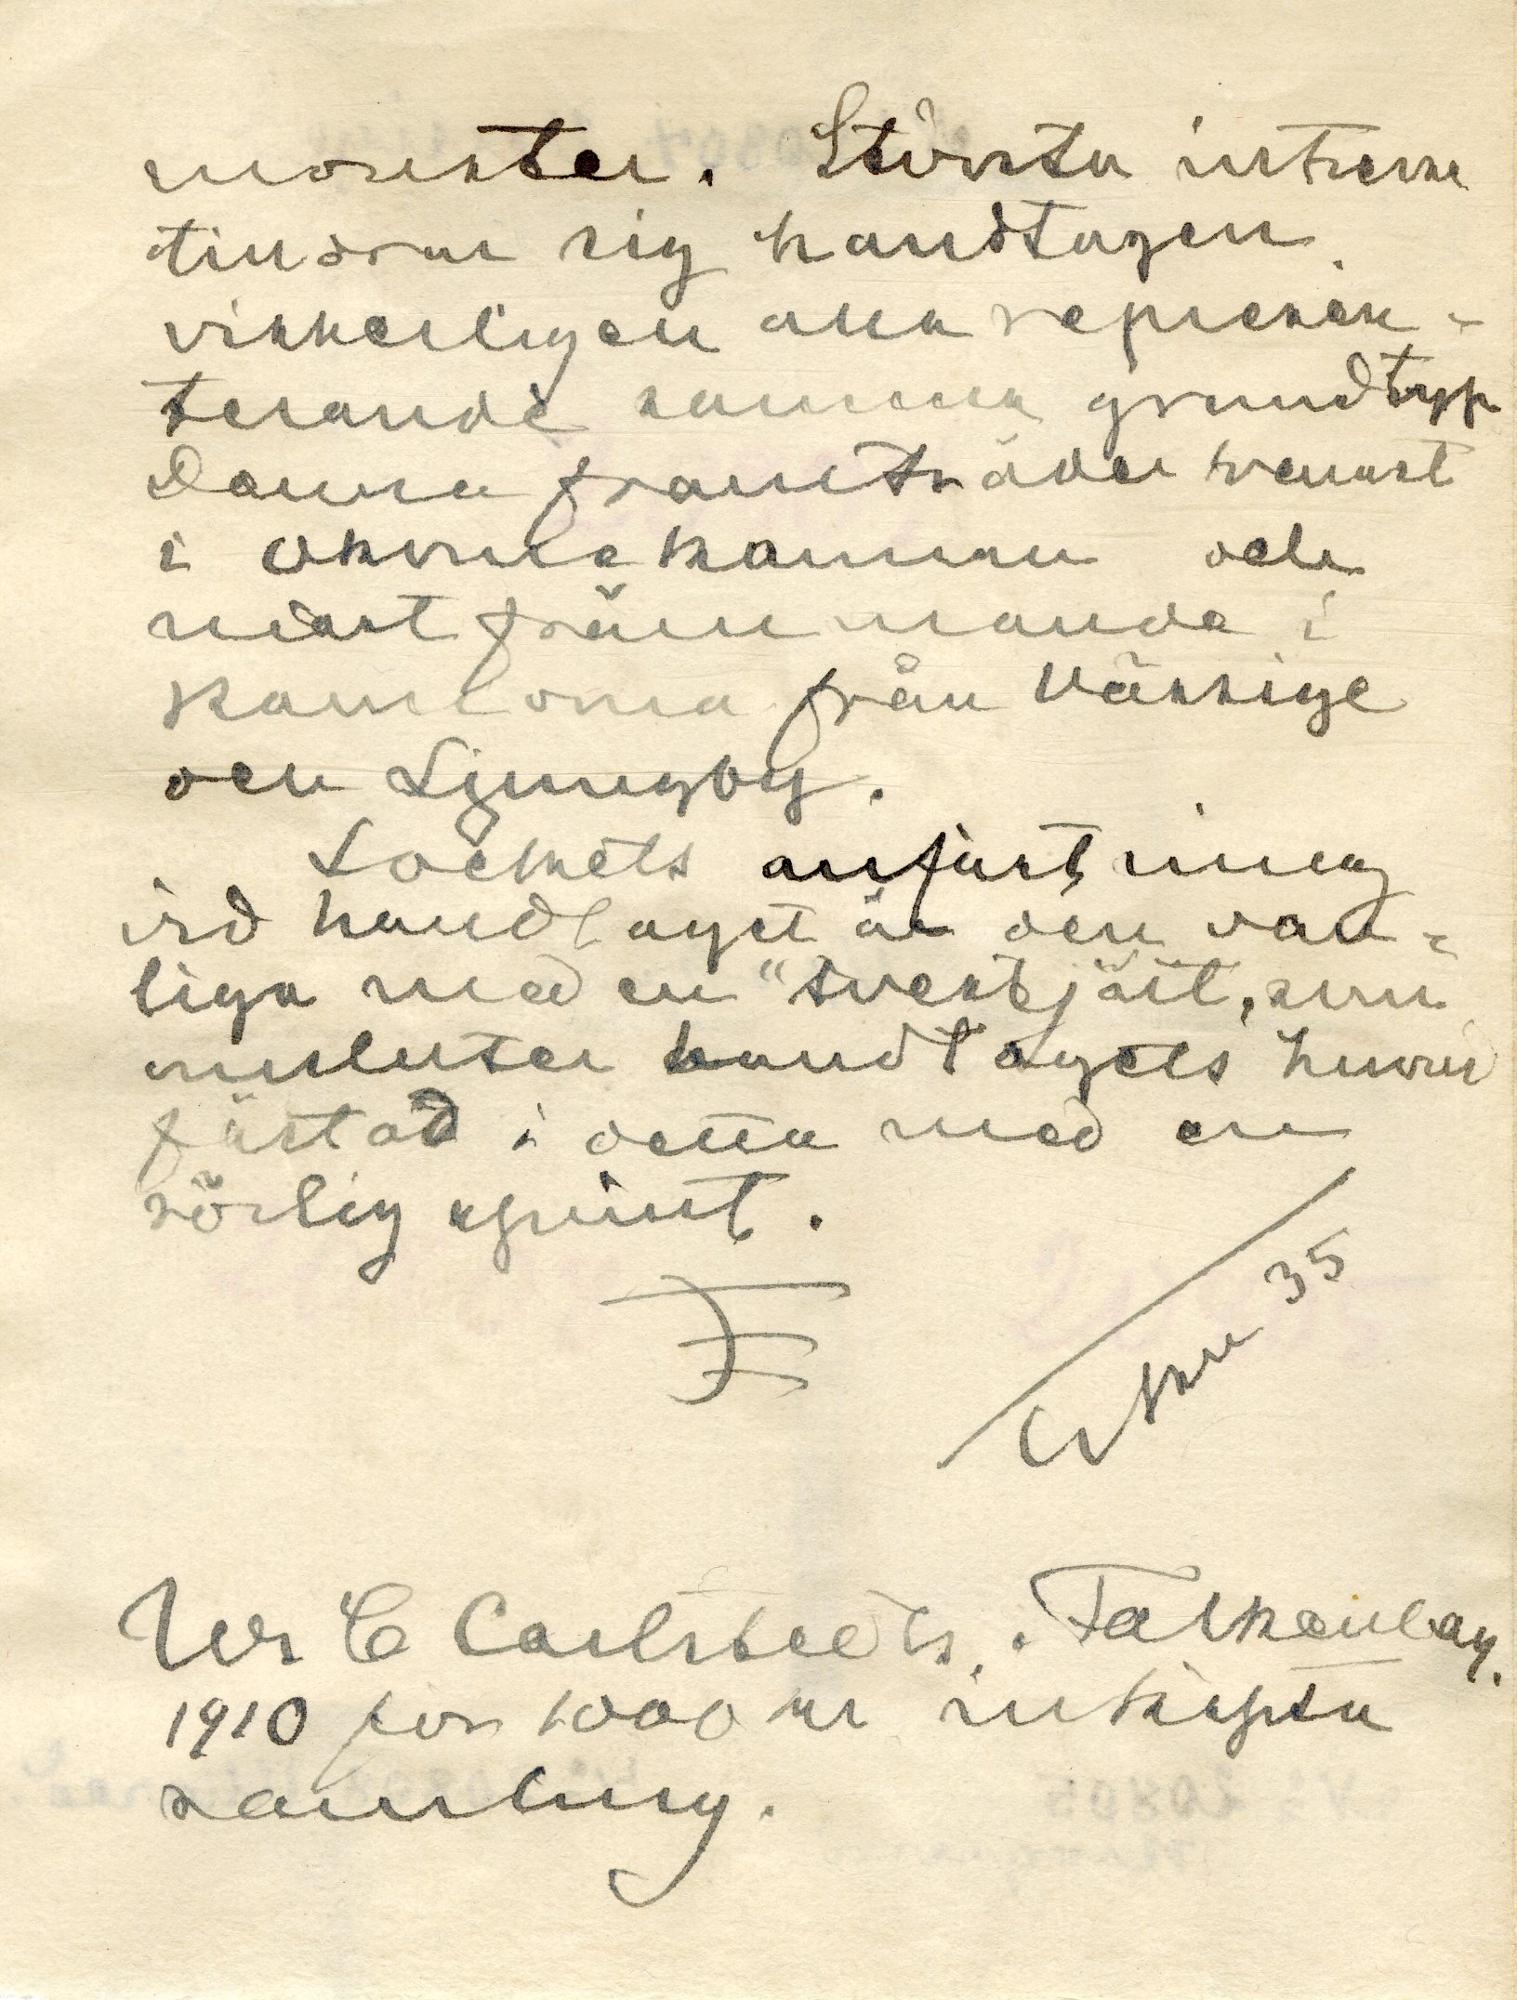 mönster. Största intresse
tilldrar sig handtagen.
visserligen alla represen-
terande samma grundtyp
Denna framträder renast
i Okomekannan och
mest främmande i
kannorna från Vässige
och Ljungby.
Lockets anfästning
vid handtaget är den van-
liga med en "tvestjärt, som
omsluter handtagets huvud
fästad i detta med en
rörlig sprint.
35
Ur C Carlstedts. Falkenberg.
1910 för 1000 kr inköpta
samling.